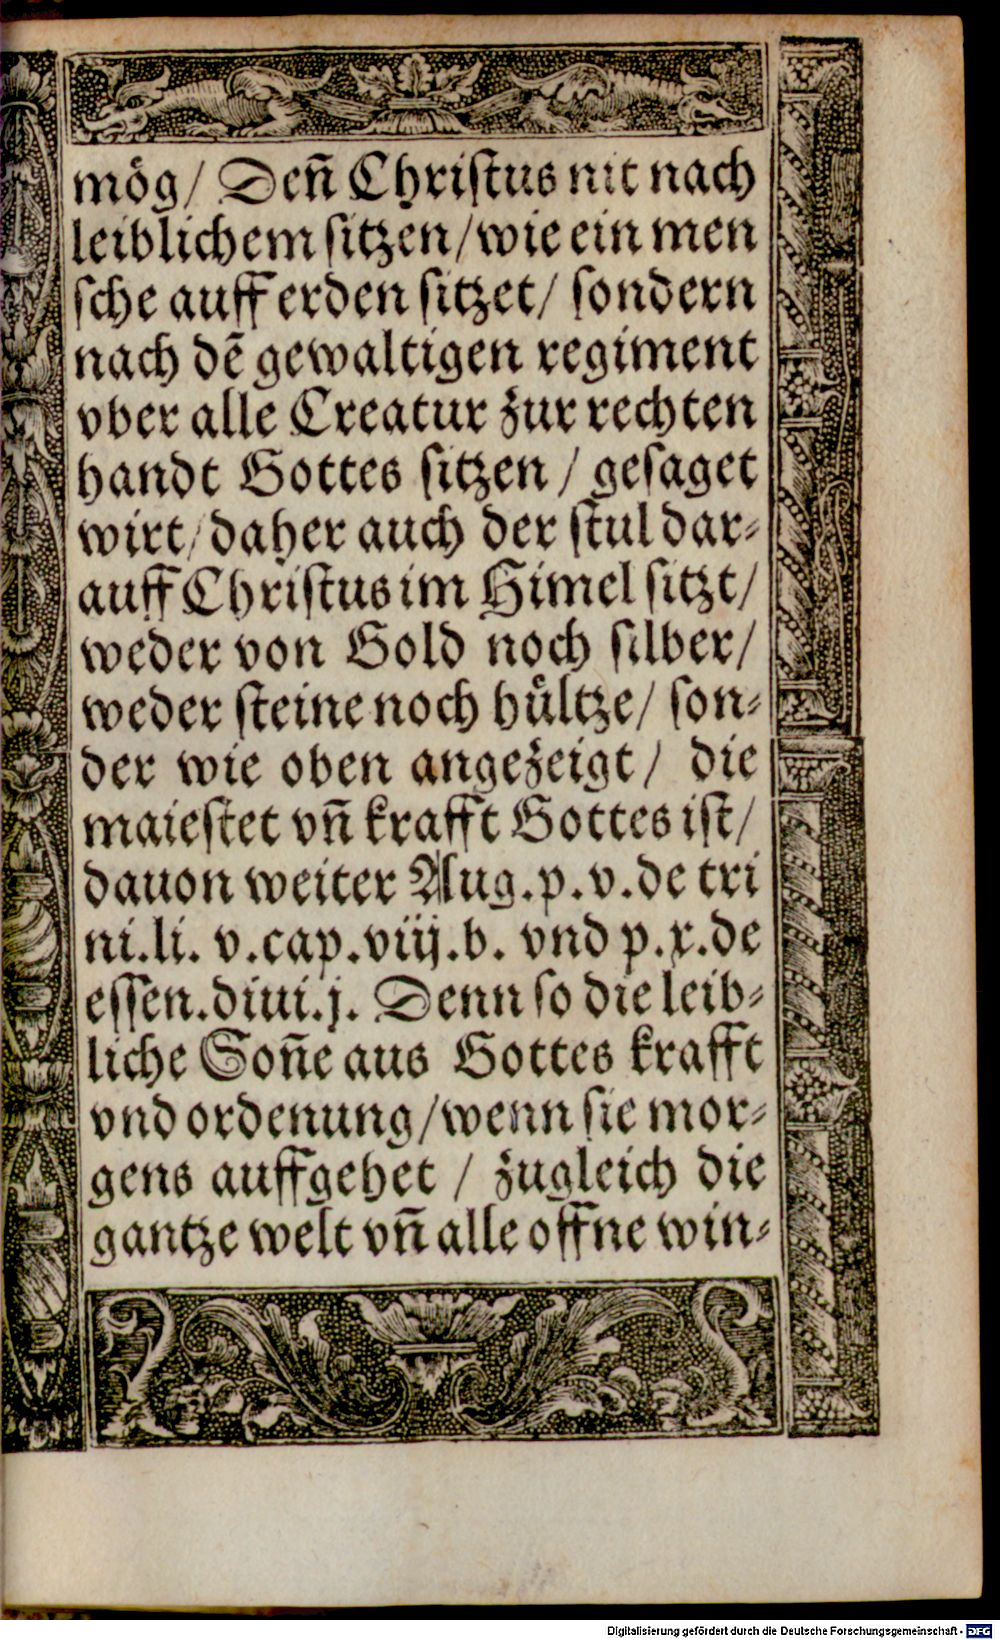 mög/ Deñ Chriſtus nit nach
leiblichem ſitzen/wie ein men
ſche auff erden ſitzet/ ſondern
nach dē gewaltigen regiment
vber alle Creatur zur rechten
handt Gottes ſitzen / geſaget
wirt/daher auch der ſtul dar⸗
auff Chriſtus im Himel ſitzt/
weder von Gold noch ſilber/
weder ſteine noch hültze/ ſon⸗
der wie oben angezeigt/ die
maieſtet vñ krafft Gottes iſt/
dauon weiter Aug.p.v.de tri
ni.li. v.cap.viij.b. vnd p.x.de
eſſen.diui.j. Denn ſo die leib⸗
liche Soñe aus Gottes krafft
vnd ordenung/wenn ſie mor⸗
gens auffgehet / zugleich die
gantze welt vñ alle offne win⸗
Digitalisierung gefördert durch die Deutsche Forschungsgemeinschaft - DFG